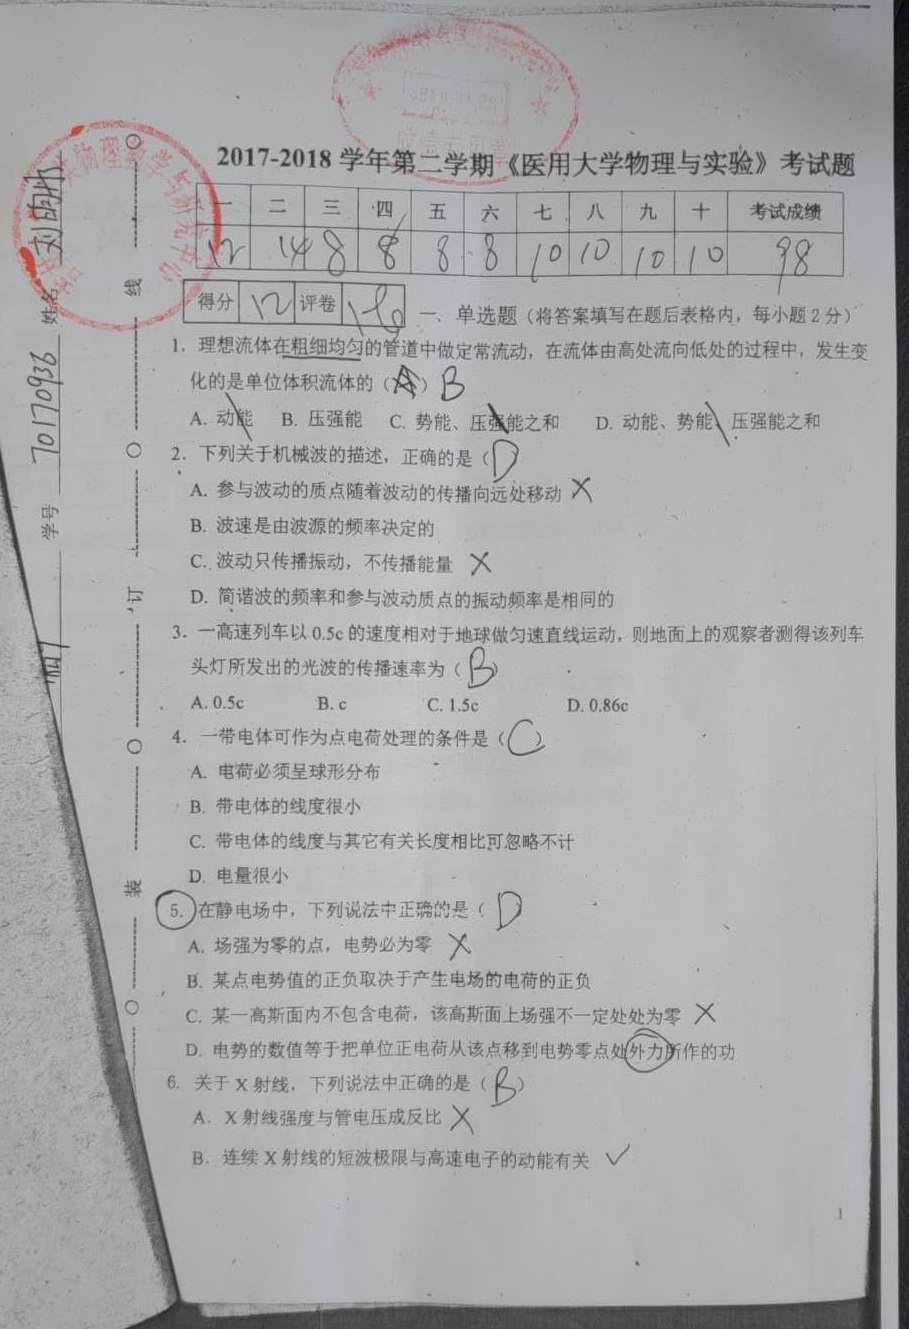 2017-2018 学年第二学期《医用大学物理与实验》考试题
一 二 三 四 五 六 七 八 九 十 考试成绩
12 14 8 8 8 8 10 10 10 10 98
得分 12 评卷
一、单选题（将答案填写在题后表格内，每小题 2 分）
1. 理想流体在粗细均匀的管道中做定常流动，在流体由高处流向低处的过程中，发生变
化的是单位体积流体的（A）B
A. 动能 B. 压强能 C. 势能、压强能之和 D. 动能、势能、压强能之和
2. 下列关于机械波的描述，正确的是（D
A. 参与波动的质点随着波动的传播向远处移动 ×
B. 波速是由波源的频率决定的
C. 波动只传播振动，不传播能量 ×
D. 简谐波的频率和参与波动质点的振动频率是相同的
3. 一高速列车以 0.5c 的速度相对于地球做匀速直线运动，则地面上的观察者测得该列车
头灯所发出的光波的传播速率为（B）
A. 0.5c B. c C. 1.5c D. 0.86c
4. 一带电体可作为点电荷处理的条件是（C）
A. 电荷必须呈球形分布
B. 带电体的线度很小
C. 带电体的线度与其它有关长度相比可忽略不计
D. 电量很小
5. 在静电场中，下列说法中正确的是（D
A. 场强为零的点，电势必为零 ×
B. 某点电势值的正负取决于产生电场的电荷的正负
C. 某一高斯面内不包含电荷，该高斯面上场强不一定处处为零 ×
D. 电势的数值等于把单位正电荷从该点移到电势零点处外力所作的功
6. 关于 X 射线，下列说法中正确的是（B）
A. X 射线强度与管电压成反比 ×
B. 连续 X 射线的短波极限与高速电子的动能有关 ✓
1
姓名
学号 70170936
线
订
装